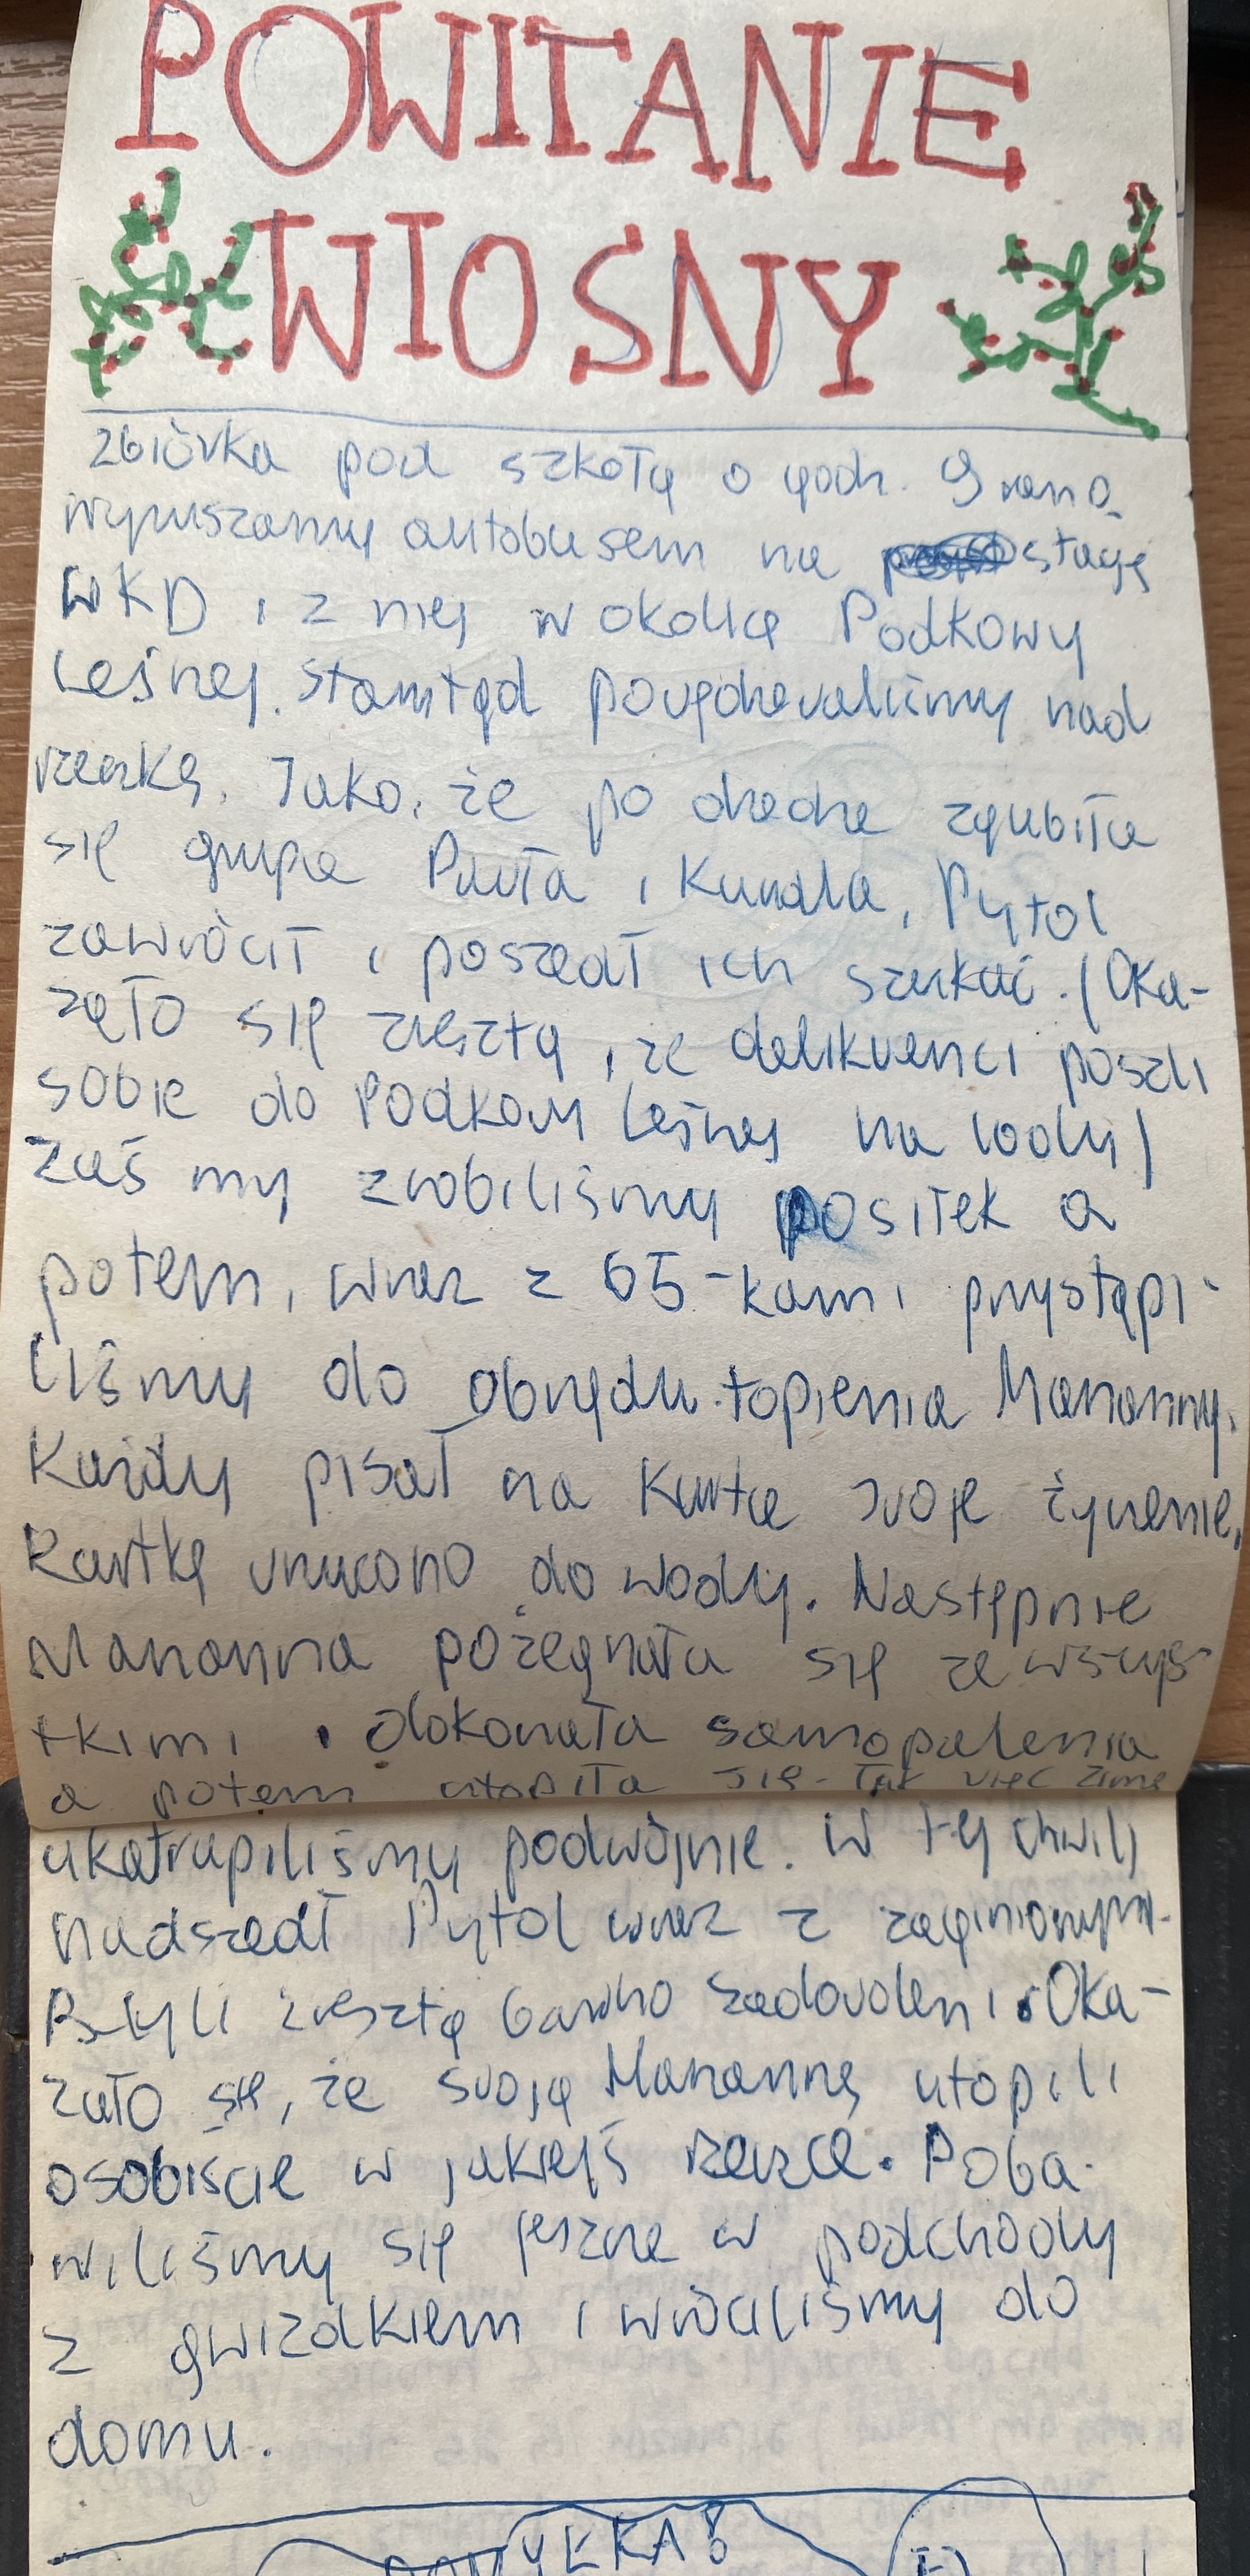 POWITANIE
WIOSNY
Zbiórka pod szkołą o godz. 9 rano.
wyruszamy autobusem na stację
WKD i z niej w okolicę Podkowy
Leśnej. Stamtąd powędrowaliśmy nad
rzeczkę. Jako, że po drodze zgubiła
się grupa Pawła i Kunala, Pytol
zawrócił i poszedł ich szukać. (Oka-
zało się zresztą, że delikwenci poszli
sobie do Podkowy Leśnej na lody)
Zaś my zrobiliśmy posiłek a
potem, wraz z 65-kami przystąpi-
liśmy do obrzędu topienia Marzanny.
Każdy pisał na kartce swoje życzenie.
Kartkę wrzucono do wody. Następnie
Marzanna pożegnała się ze wszys-
tkimi i dokonała samopalenia
a potem utopiła się. Tak więc zimę
ukatrupiliśmy podwójnie. W tej chwili
nadszedł Pytol wraz z zaginionymi.
Byli zresztą bardzo zadowoleni. Oka-
zało się, że swoją Marzannę utopili
osobiście w jakiejś rzeczce. Poba-
wiliśmy się jeszcze w podchody
z gwizdkiem i wróciliśmy do
domu.